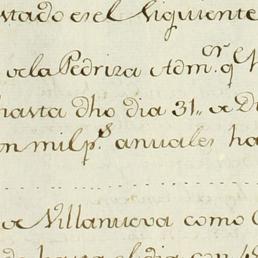 stado es el Siguiente
de la Pedriza Adm.or q.e
hasta dho dia 31,, de D
un mil p.s anuales ha
de Villanueva como